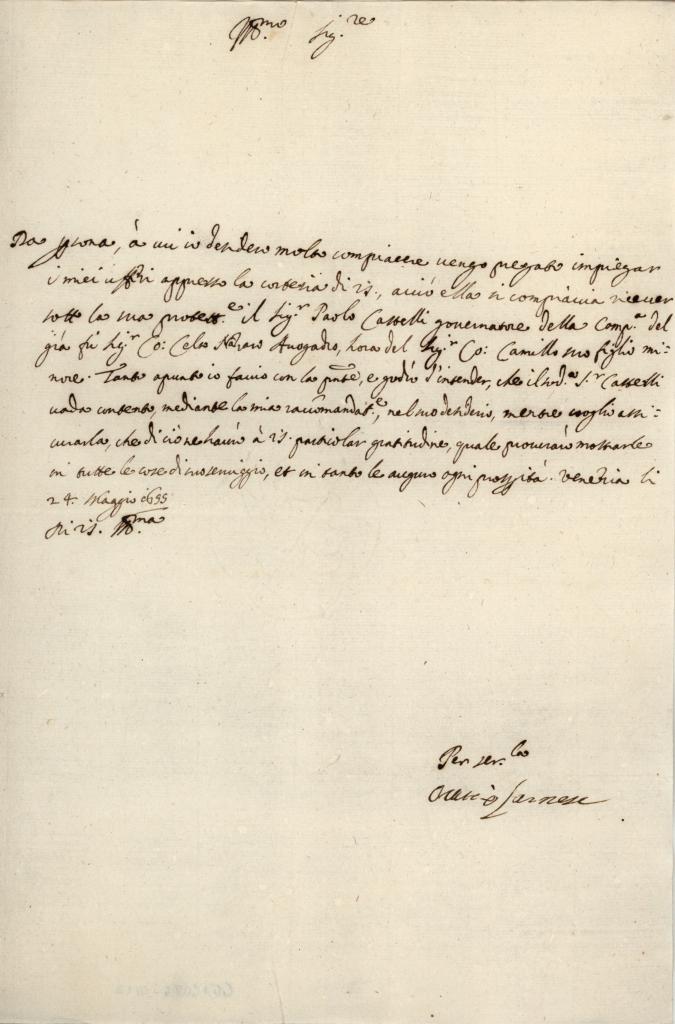 Ill.mo Sig.re
Da persona, à cui io desidero molto compiacere vengo pregato impiegar
i miei uffici appresso la cortesia di V.S., acciò ella si compiaccia ricever
sotto la sua protett.e il Sig.r Paolo Castelli governatore della Comp.a del
già fù Sig.r Co: Celso Avogadro, hora del Sig.r Co: Camillo suo figlio mi-
nore. Tanto apunto io faccio con la pnte, e godrò d'intender, che il sod.o S.r Castelli
vada contento, mediante la mia raccomandat.e, nel suo desiderio, mentre voglio assi-
curarla, che di ciò ne haverò à V.S. particolar gratitudine, quale procurarò mostrarle
in tutte le cose di suo serviggio, et in tanto le auguro ogni prosperità. Venetia li
24. Maggio 1655
Di V.S. Ill.ma
Per ser.la
Oratio Farnese